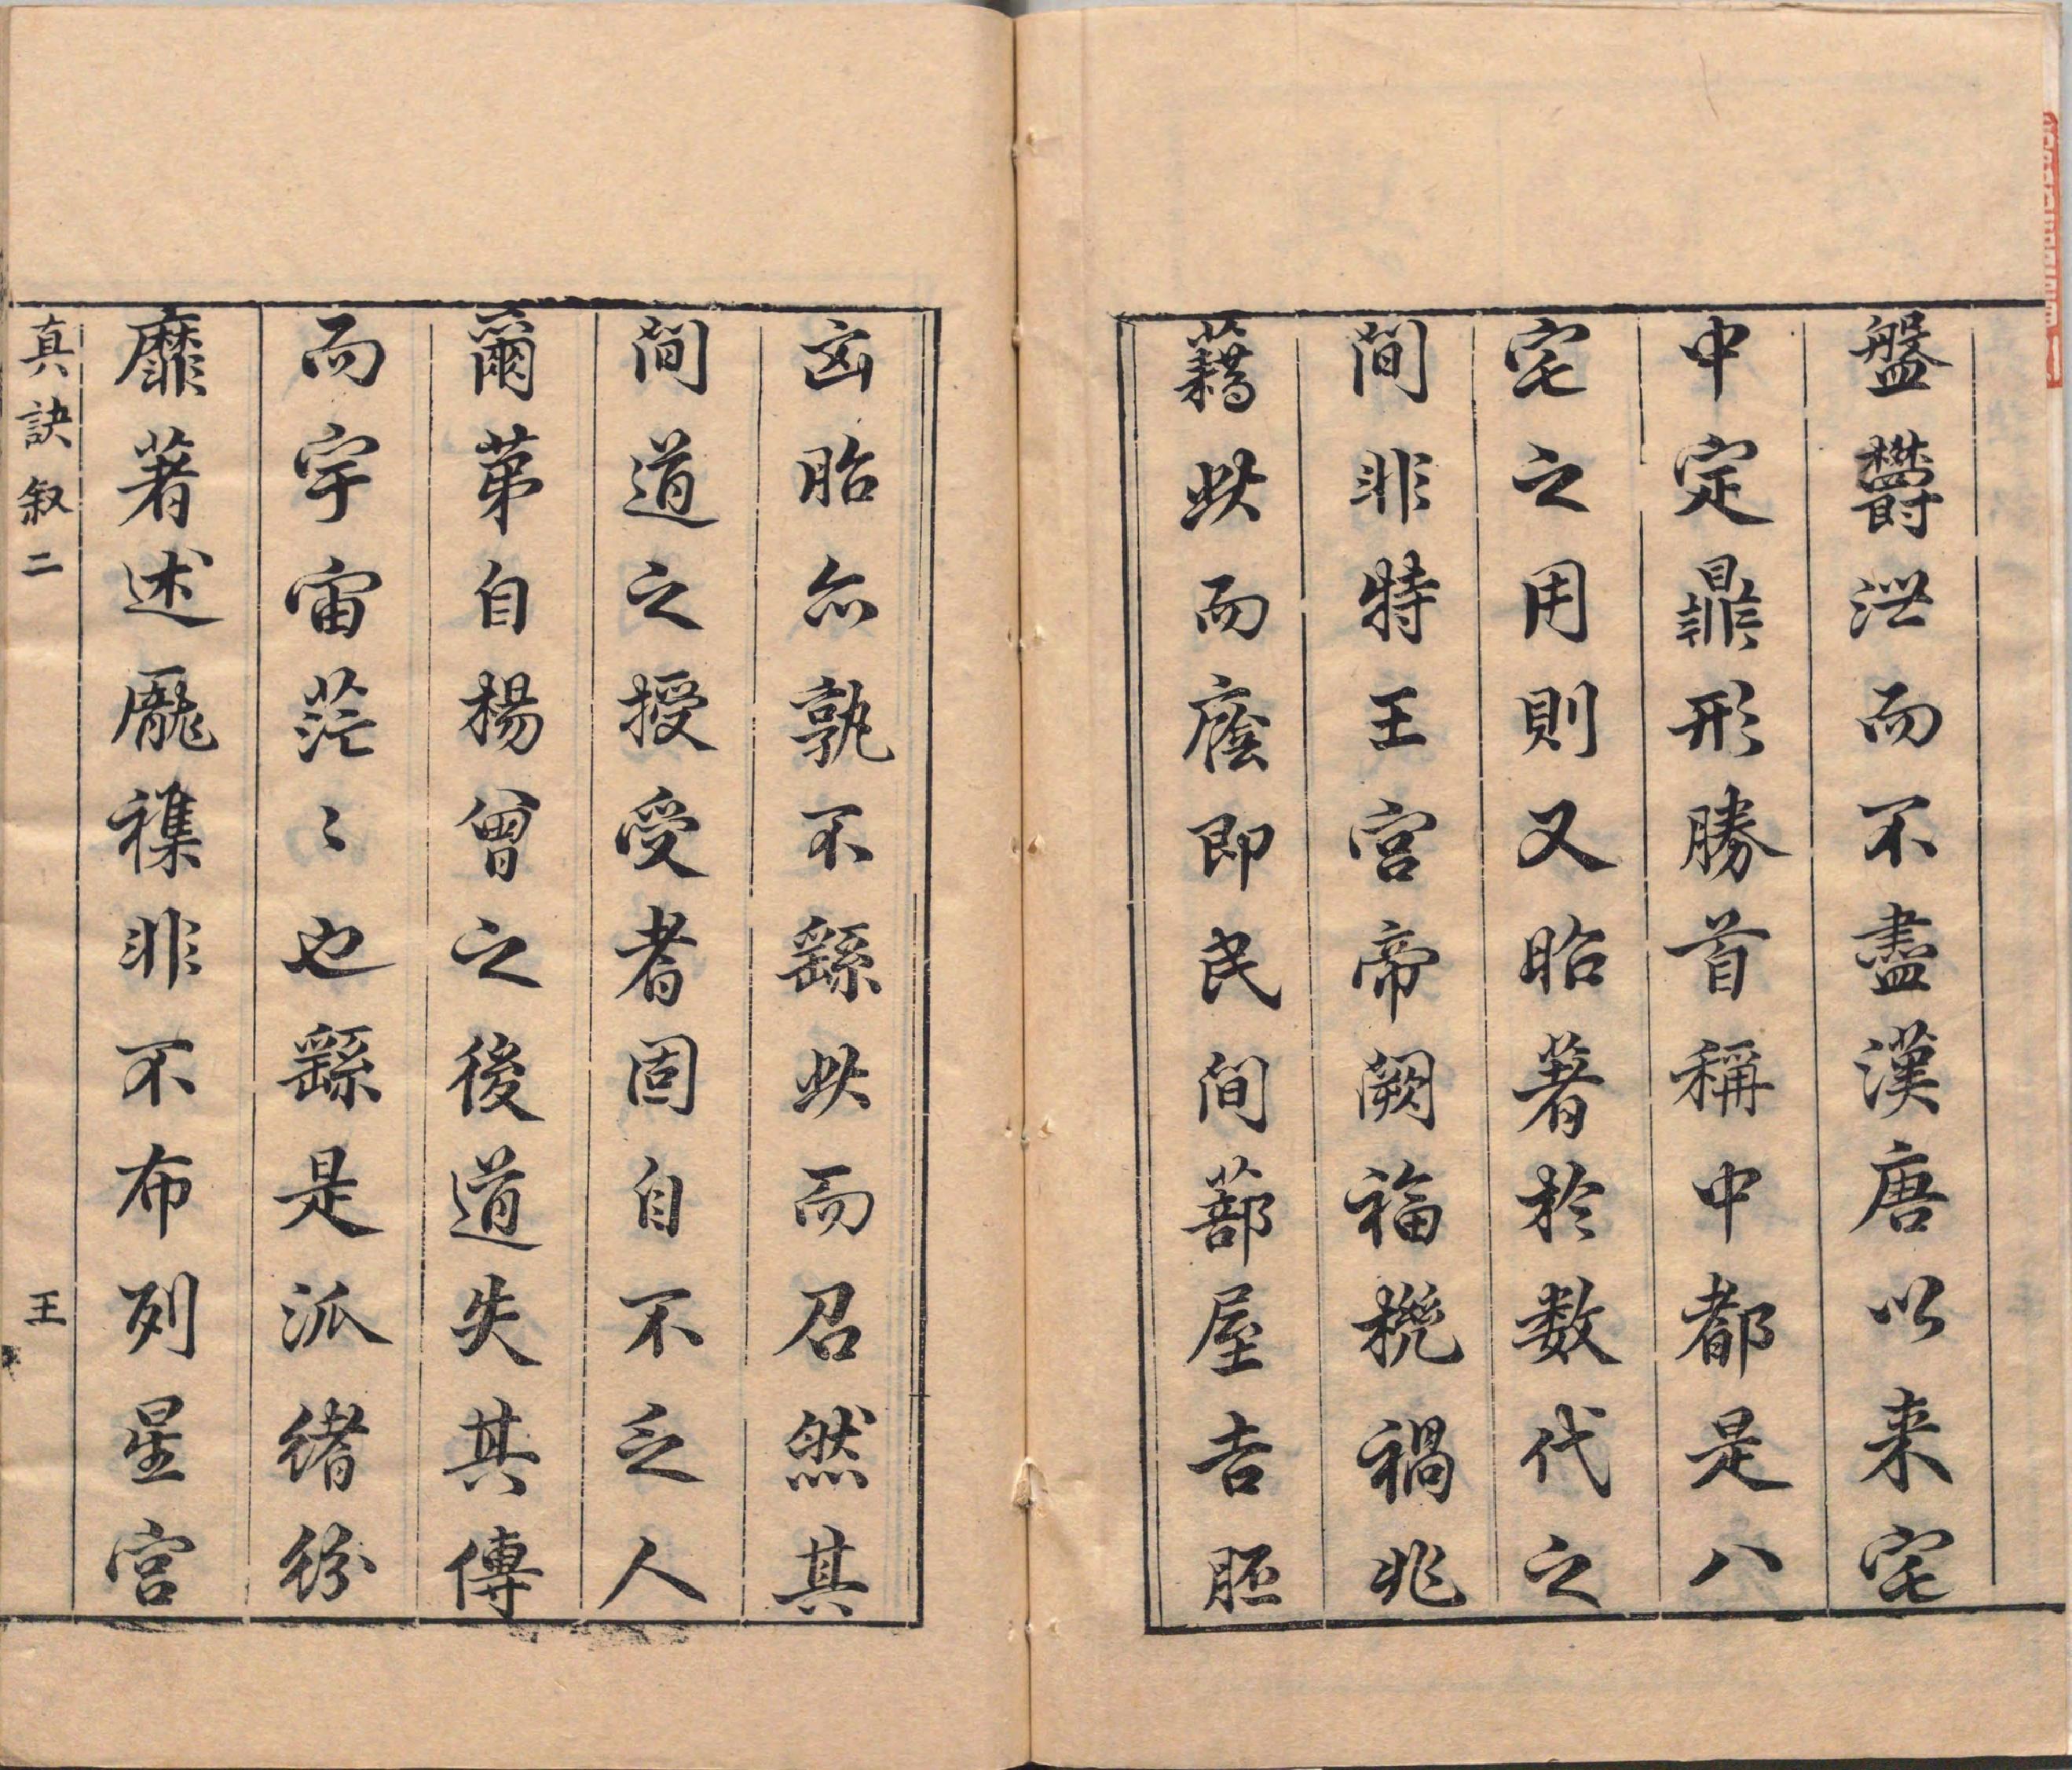 盤欝泄而不盡漢唐以来宅
中定鼎形勝首稱中都是八
宅之用則又昭著於数代之
間非特王宮帝闕福機禍兆
藉此而廕即民間蔀屋吉胚
凶胎亦孰不繇此而召然其
間道之授受者固自不乏人
爾苐自楊曾之後道失其傳
而宇宙茫〻也繇是派緒紛
靡著述厖襍非不布列星宮
真訣叙二
王